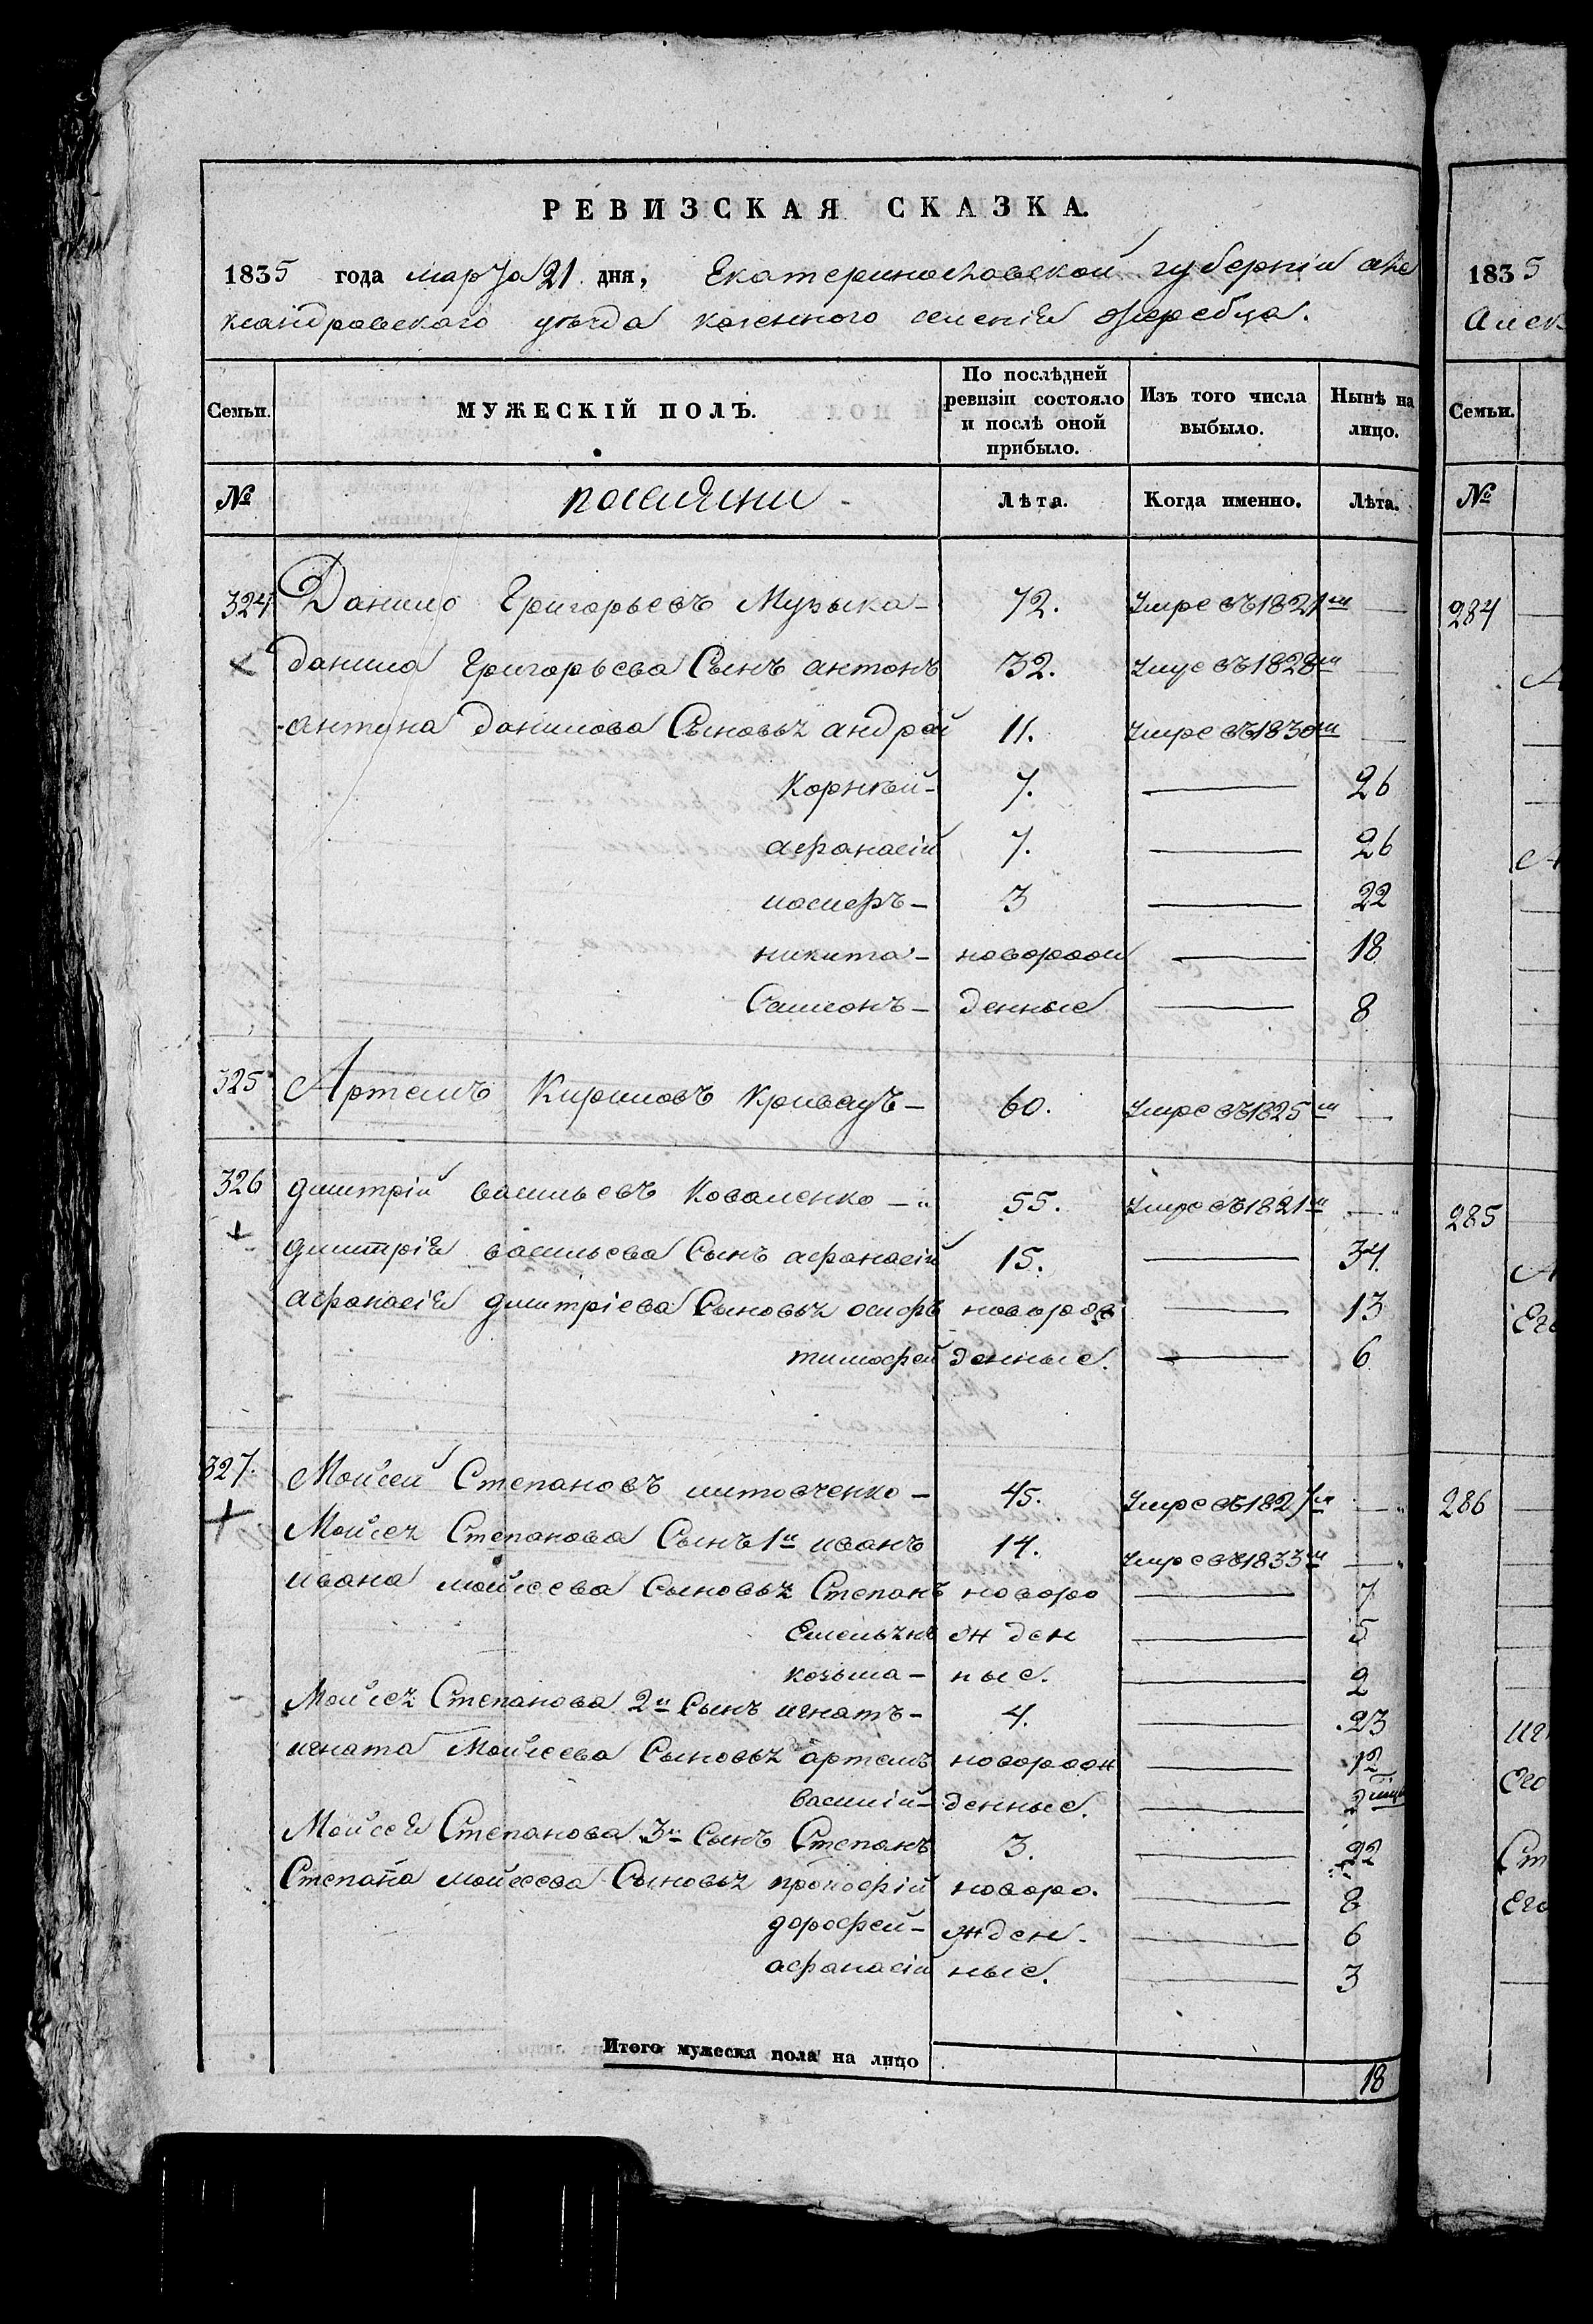 РЕВИЗСКАЯ СКАЗКА.
1835 года марта 21 дня, Екатеринославской губернии Але
ксандровскаго уезда казенного селения Жеребца.
Семьи. МУЖЕСКІЙ ПОЛЪ. По послѣдней ревизіи состояло и послѣ оной прибыло. Изъ того числа выбыло. Нынѣ на лицо.
№ поселяни Лѣта. Когда именно. Лѣта.
324 Данило Григорьевъ Музыка — 72. Умре въ 1821м —
данила Григорьева Сынъ антонъ 32. Умре въ 1828м —
антона данилова Сыновья андрей 11. Умре въ 1830м —
Корнѣй — 7. — 26
афанасій 7. — 26
иосифъ — 3 — 22
никита — новорож — 18
Самсонъ — денные — 8
325 Артемъ Кириловъ Кривецъ — 60. Умре въ 1825м —
326 дмитрій васильевъ Коваленко — 55. Умре въ 1821м —
дмитрія васильева Сынъ афанасій 15. — 34
афанасія дмитріева Сыновья осифъ новорож — 13
тимофей денные. — 6
327. Мойсей Степановъ литовченко — 45. Умре въ 1827м —
Мойсея Степанова Сынъ 1й иванъ 14. Умре въ 1833м —
ивана мойсеева Сыновья Степанъ новоро — 7
Емельянъ жден — 5
козьма — ные. — 2
Мойсея Степанова 2й Сынъ игнатъ — 4. — 23
игната Мойсеева Сыновья артемъ новорож — 12
василій — денные. —
Мойсея Степанова 3й Сынъ Степанъ 3. — 22
Степана мойсеева Сыновья прокофій новоро. — 8
дорофей — жден — 6
афанасій ные. — 3
Итого мужеска пола на лицо 18
1835
Алек
Семьи.
№
284
285
Его
286
Его
Ст
Его